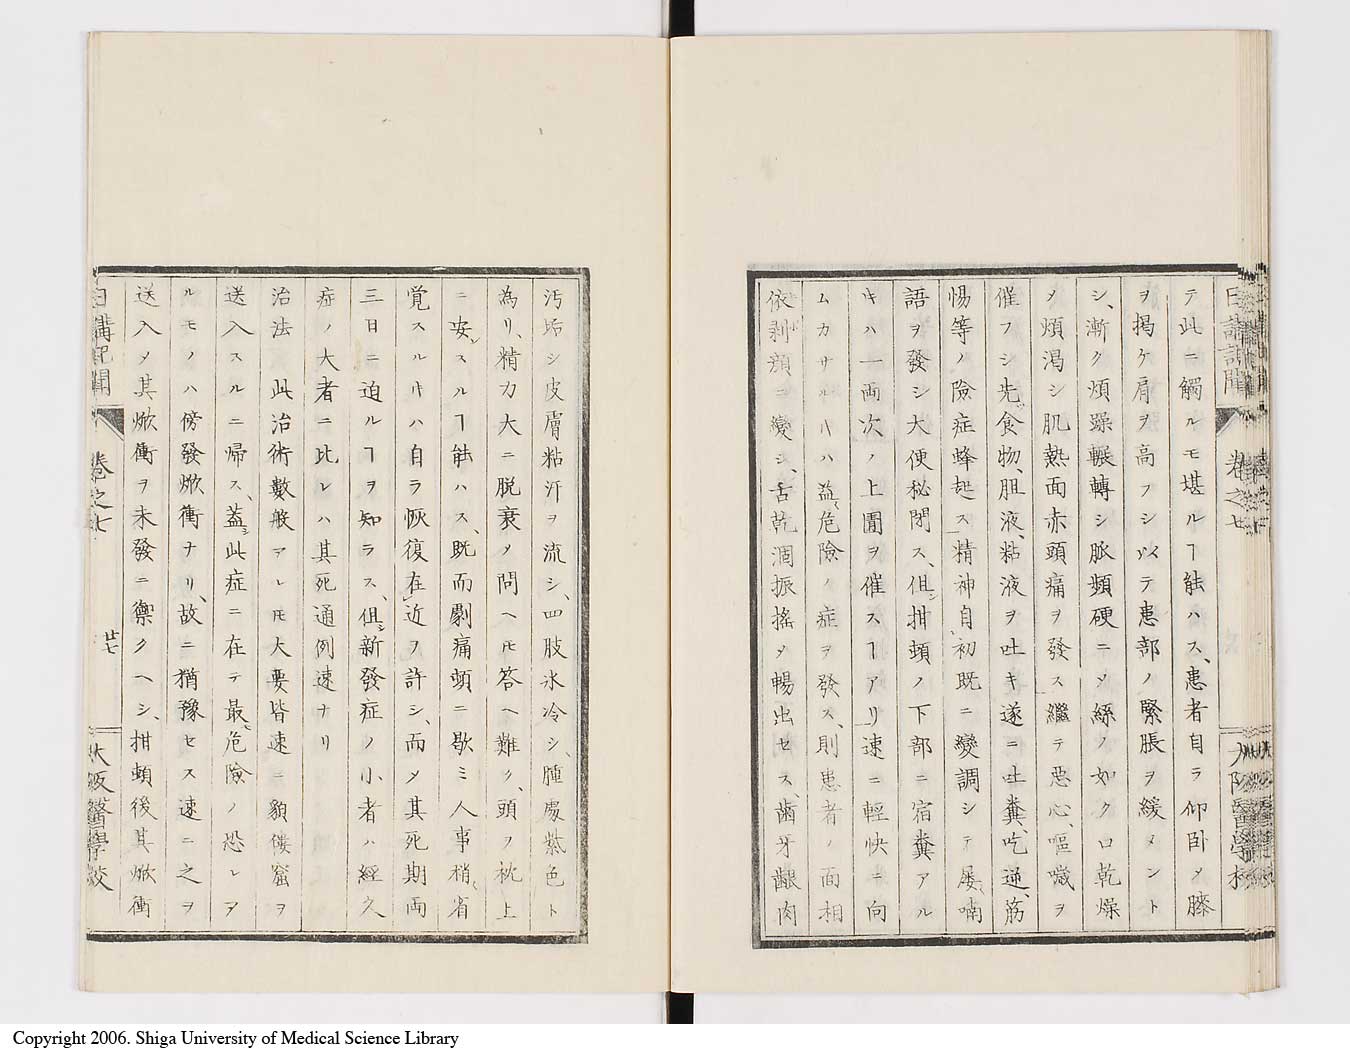 日講記聞
卷之七
大阪醫學校
テ此ニ觸ルモ堪ルヿ能ハス、患者自ラ仰卧メ膝
ヲ揭ケ肩ヲ高フシ以テ患部ノ緊脹ヲ緩メント
シ、漸ク煩躁輾轉シ脈頻硬ニメ絲ノ如ク口乾燥
メ煩渴シ肌熱面赤頭痛ヲ發ス繼テ惡心、嘔噦ヲ
催フシ先食物、胆液、粘液ヲ吐キ遂ニ吐糞、吃逆、筋
惕等ノ險症蜂起ス精神自初既ニ變調シテ屡喃
語ヲ發シ大便秘閉ス、伹拑頓ノ下部ニ宿糞アル
キハ一両次ノ上圊ヲ催スヿアリ速ニ輕快ニ向
ムカサルキハ益危險ノ症ヲ發ス、則患者ノ面相
依剥頽ニ變シ、舌乾涸振搖メ暢出セス、齒牙齦肉
汚垢シ皮膚粘汗ヲ流シ、四肢氷冷シ、腫處紫色ト
為リ、精力大ニ脱衰メ問ヘ𪜈答ヘ難ク、頭ヲ枕上
ニ安スルヿ能ハス、既而劇痛頓ニ歇ミ人事稍省
覚スルキハ自ラ恢復在近ヲ許シ、而メ其死期両
三日ニ迫ルヿヲ知ラス、伹新發症ノ小者ハ經久
症ノ大者ニ比レハ其死通例速ナリ
治法 此治術數般アレ𪜈大要皆速ニ貌僂窟ヲ
送入スルニ帰ス、蓋此症ニ在テ最危險ノ恐レア
ルモノハ傍發焮衝ナリ、故ニ猶豫セス速ニ之ヲ
送入メ其焮衝ヲ未發ニ禦クヘシ、拑頓後其焮衝
日講記聞
卷之七
廿七
大阪醫學校
Copyright 2006. Shiga University of Medical Science Library